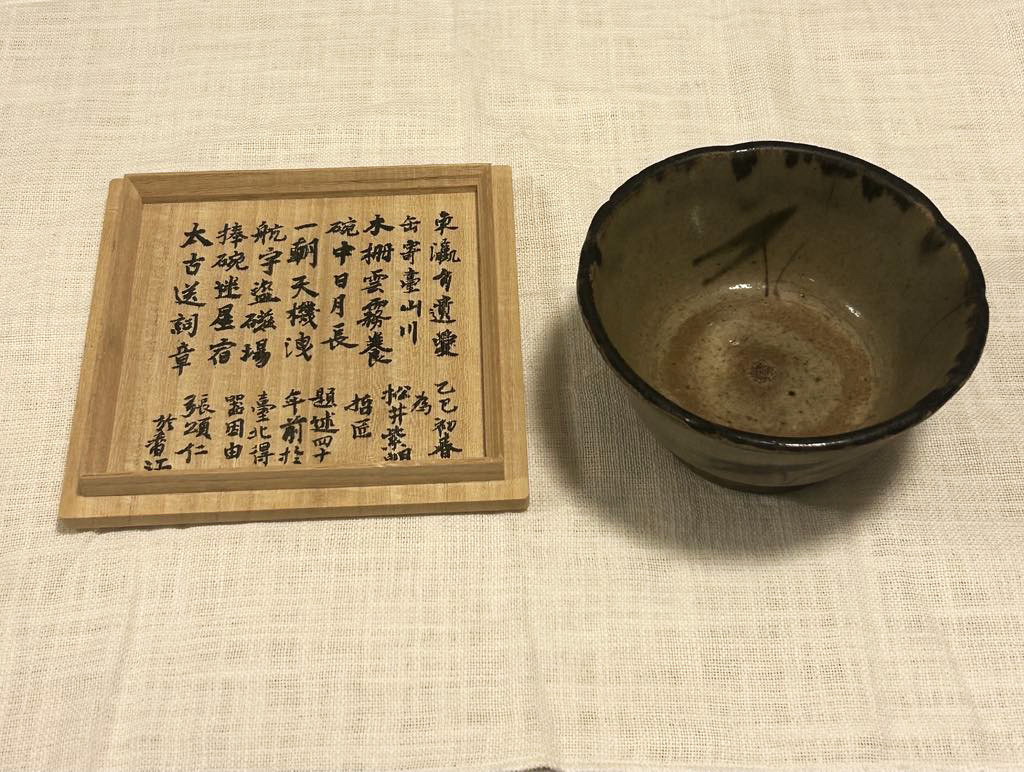 東瀛有遺甕
缶寄臺山川
木棚雲霧養
碗中日月長
一朝天機洩
航宇盜磁場
捧碗迷屋宿
太古送詞章
乙巳初春
為
松井紫朗
哲匠
題述四十
年前於
臺北得
器因由
張頌仁
於香江